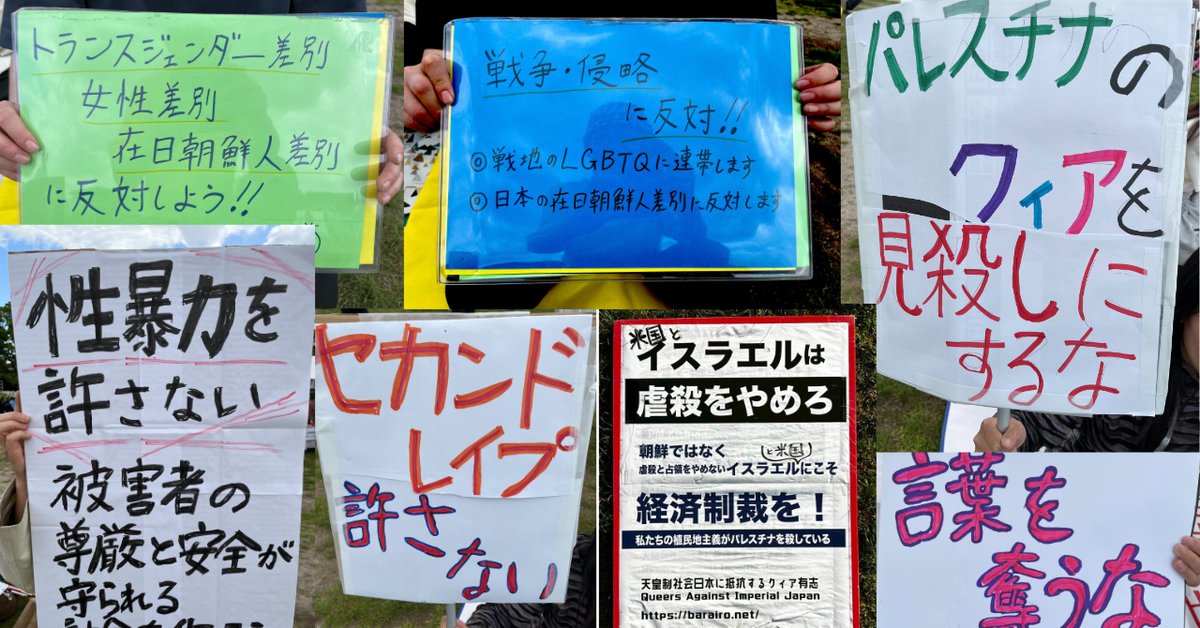 トランスジェンダー差別
女性差別
在日朝鮮人差別
に反対しよう!!
戦争・侵略
に反対!!
◎戦地のLGBTQに連帯します
◎日本の在日朝鮮人差別に反対します
パレスチナの
クィアを
見殺しに
するな
性暴力を
許さない
被害者の
尊厳と安全が
守られる
セカンド
レイプ
許さない
米国と
イスラエルは
虐殺をやめろ
朝鮮ではなく
と米国
虐殺と占領をやめないイスラエルにこそ
経済制裁を！
私たちの植民地主義がパレスチナを殺している
天皇制社会日本に抵抗するクィア有志
Queers Against Imperial Japan
https://barairo.net/
言葉を
奪うな